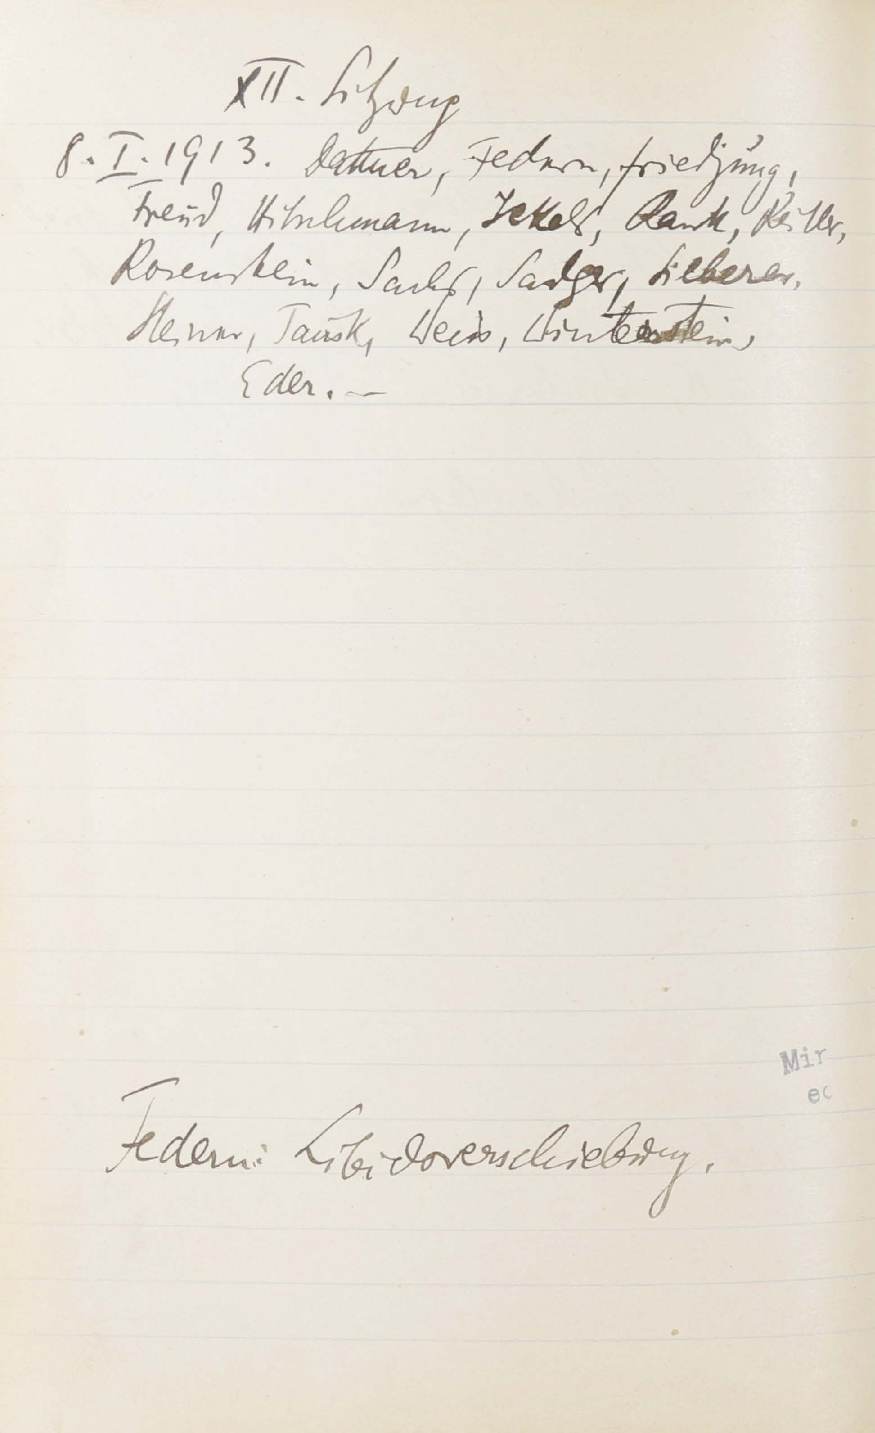 XII. Sitzung
8. I. 1913. Dattner, Federn, Friedjung,
Freud, Hitschmann, Jekels, Rank, Reitler,
Rosenstein, Sachs, Sadger, Silberer,
Steiner, Tausk, Weiss, Winterstein,
Eder. —
Mir
ec
Federn: Libidoverschiebung.